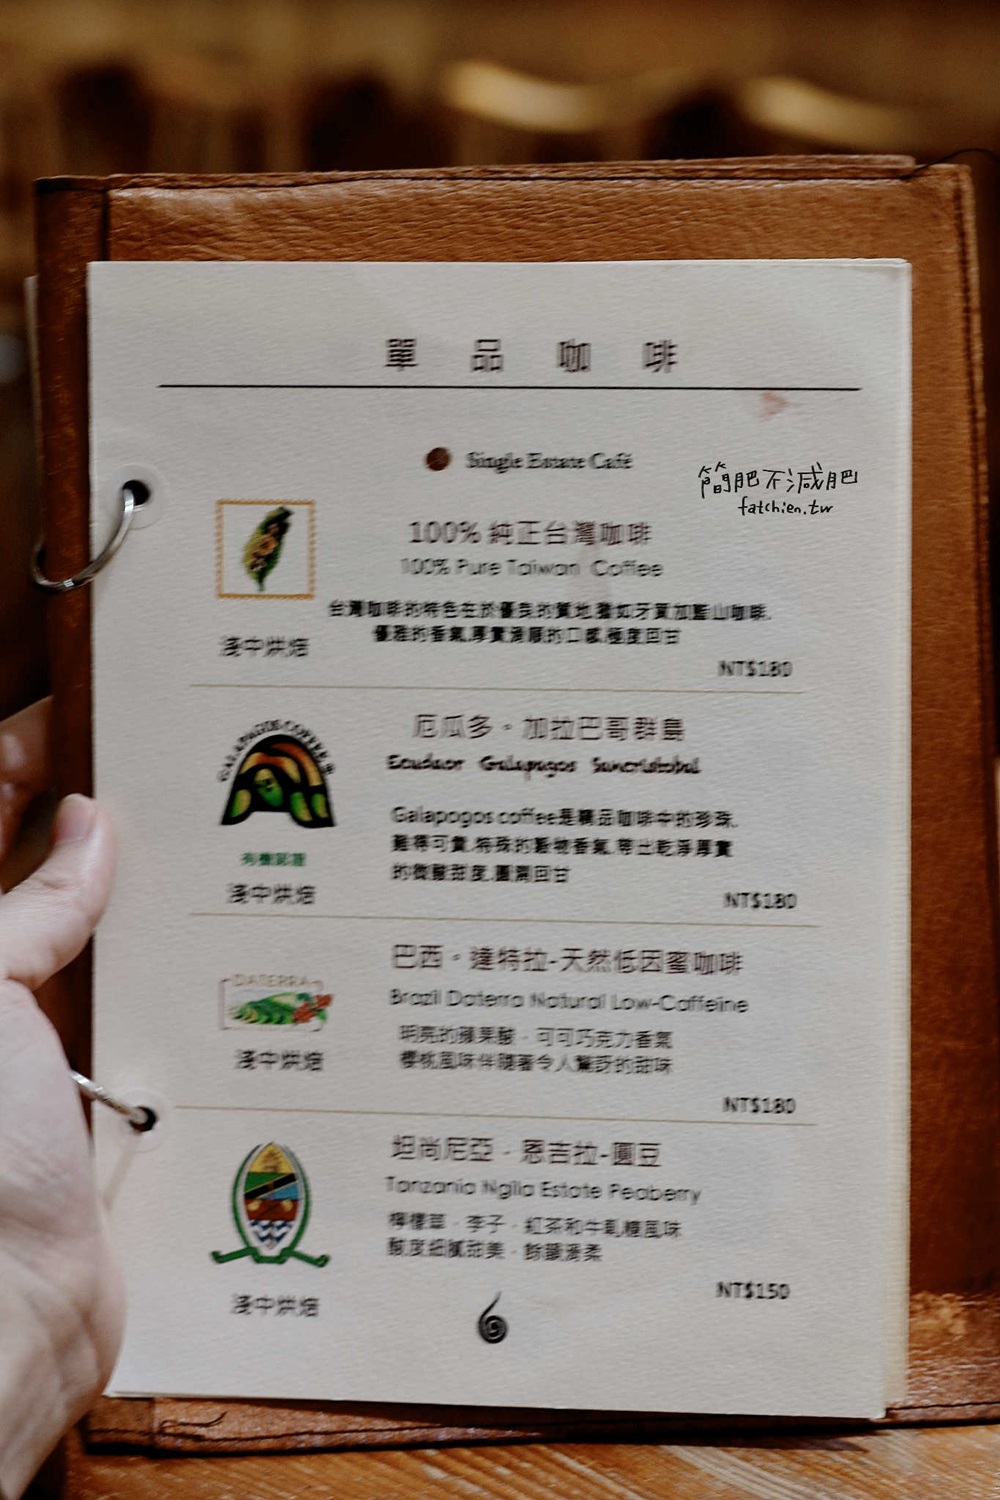 單品咖啡
Single Estate Café
簡肥不減肥
fatchien.tw
100% 純正台灣咖啡
100% Pure Taiwan Coffee
台灣咖啡的特色在於優良的質地,猶如牙買加藍山咖啡,
優雅的香氣,厚實滑順的口感,極度回甘
淺中烘焙
NT$180
GALAPAGOS COFFEE
厄瓜多。加拉巴哥群島
Ecuduor Galapagos Sancristobal
Galapogos coffee是精品咖啡中的珍珠,
難得可貴,特殊的穀物香氣,帶出乾淨厚實
的微酸甜度,圓潤回甘
有機認證
淺中烘焙
NT$180
DATERRA
巴西。達特拉-天然低因蜜咖啡
Brazil Daterra Natural Low-Caffeine
明亮的蘋果酸．可可巧克力香氣
櫻桃風味伴隨著令人驚訝的甜味
淺中烘焙
NT$180
坦尚尼亞．恩吉拉-圓豆
Tanzania Ngila Estate Peaberry
檸檬草．李子．紅茶和牛軋糖風味
酸度細膩甜美．餘韻滑柔
淺中烘焙
NT$150